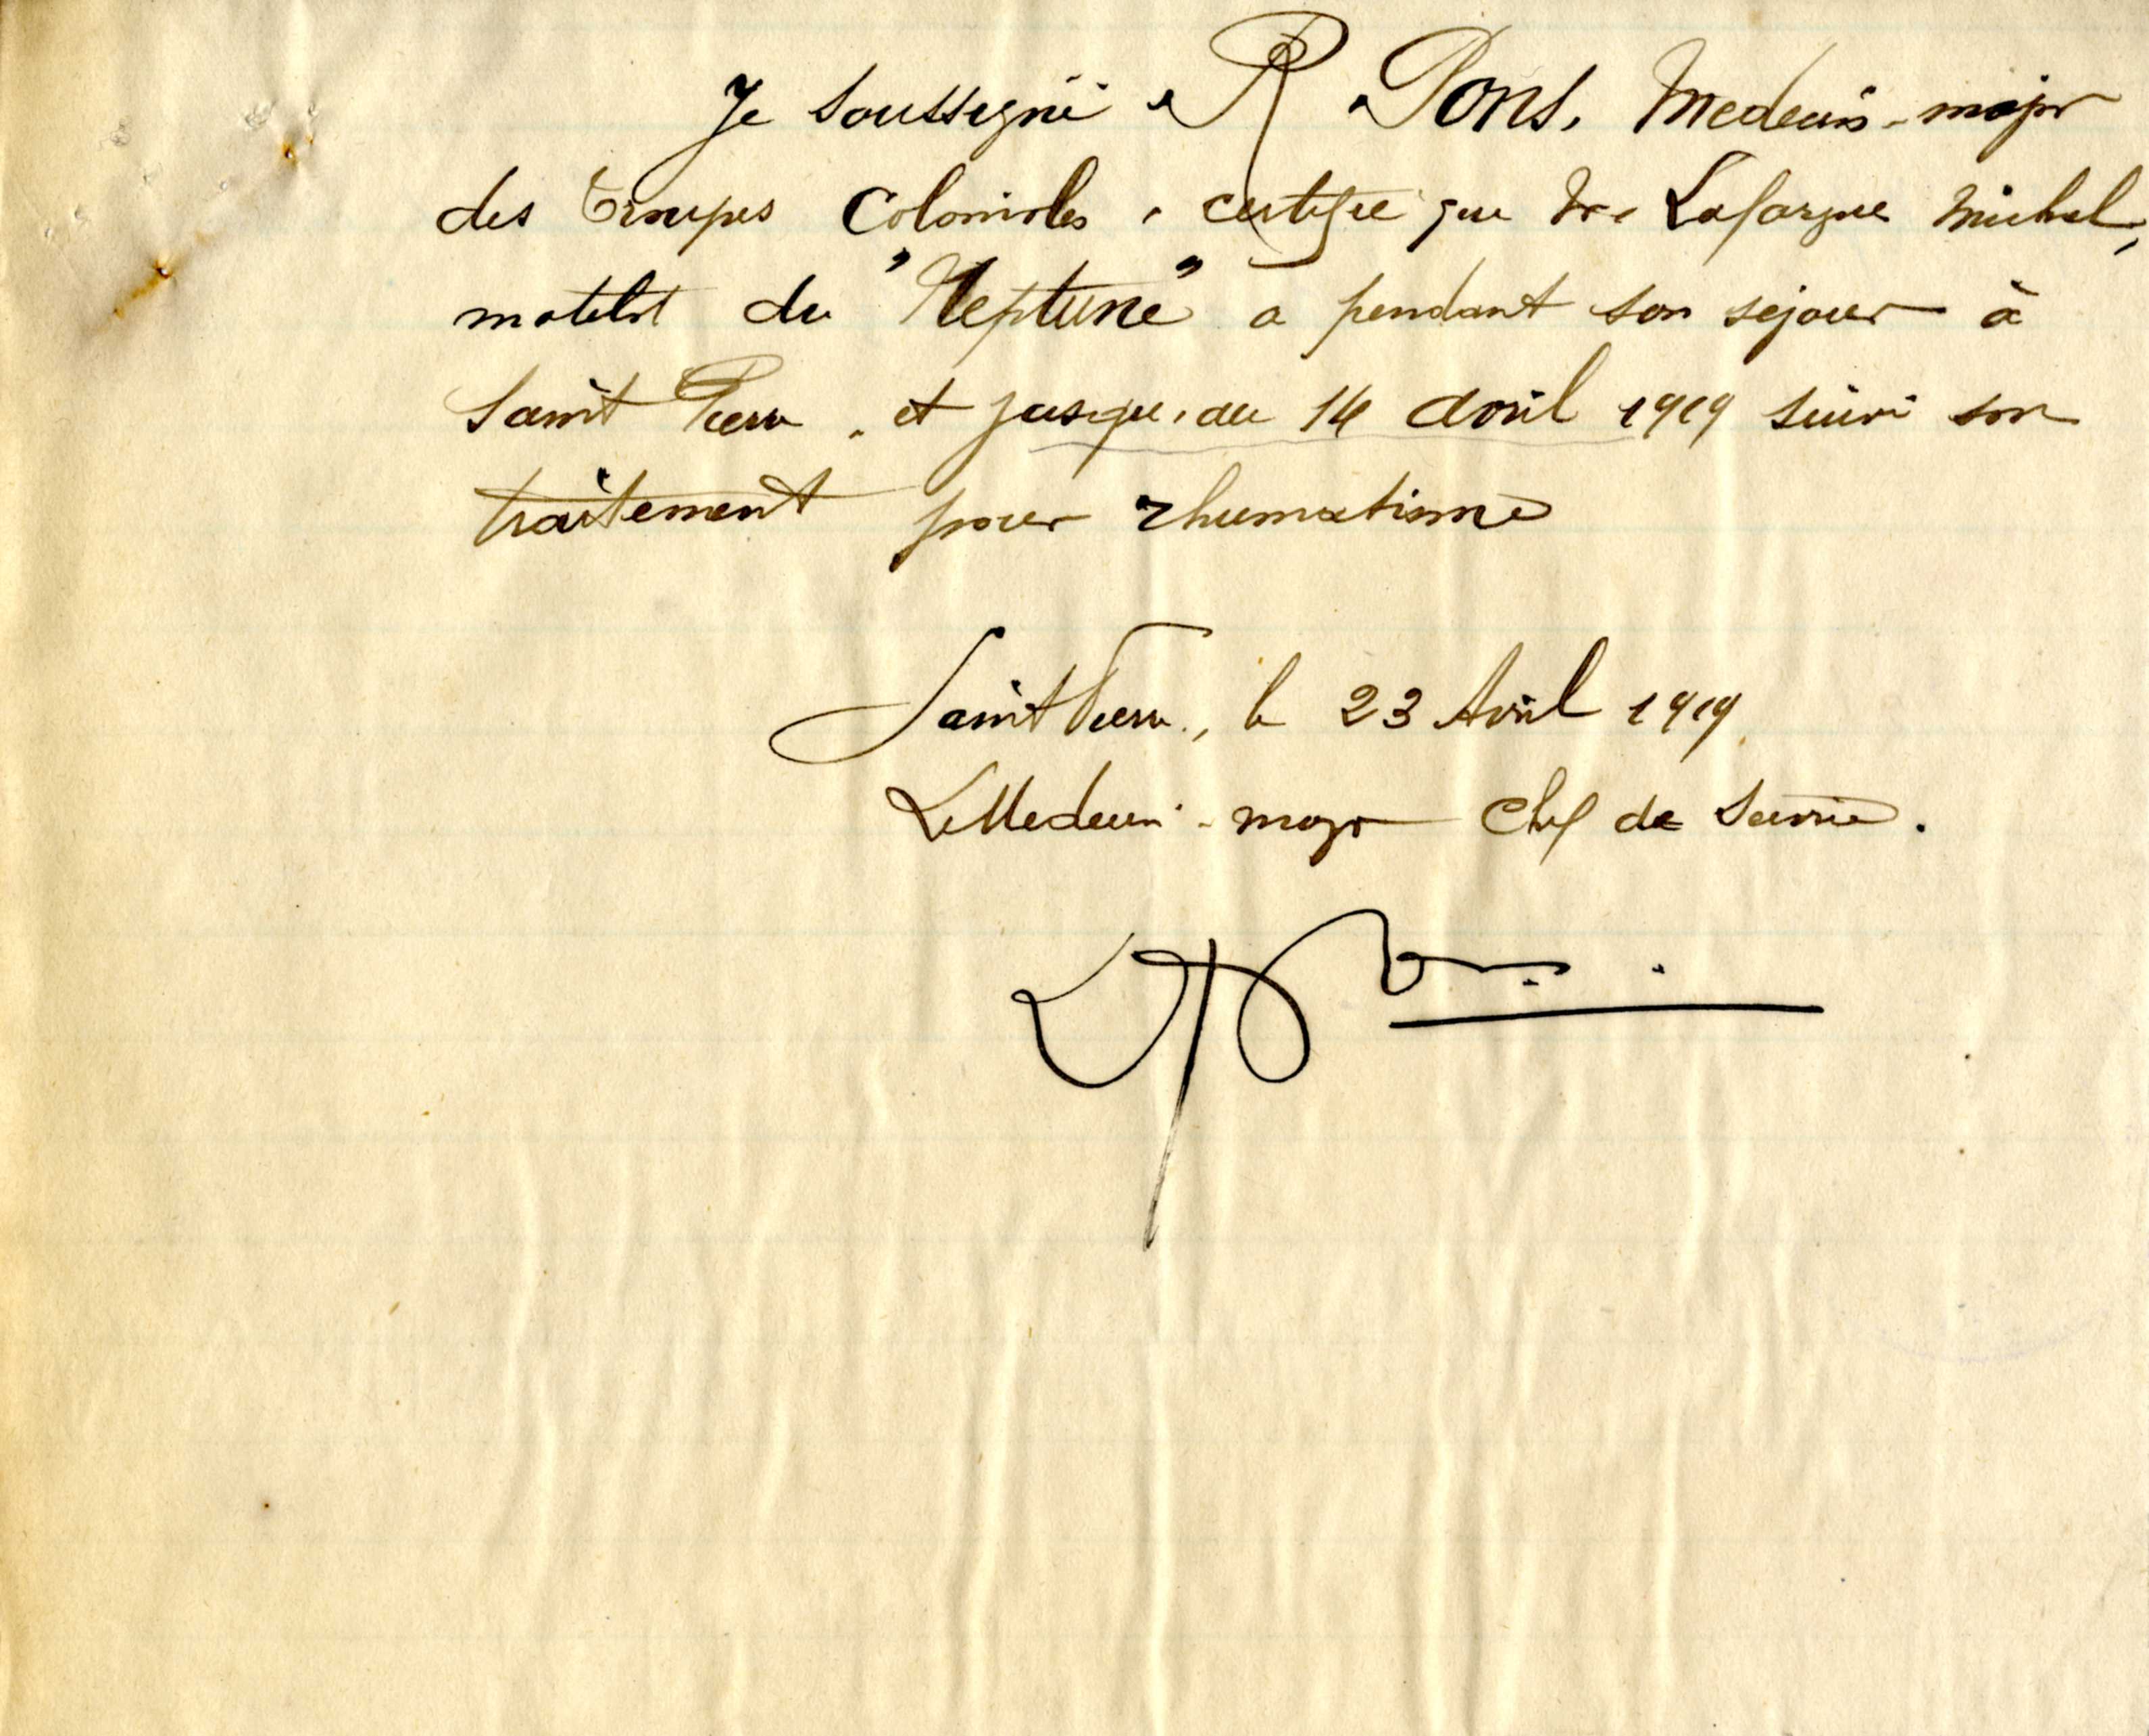 Je soussigné R Pons, Medecin-major
des Troupes Coloniales, certifie que Mr Lafargue Michel,
matelot du "Neptune" a pendant son séjour à
Saint Pierre, et jusqu'au 14 avril 1919 suivi son
traitement pour rhumatisme
Saint Pierre, le 23 Avril 1919
Le Medecin-major Chef de Service.
R Pons